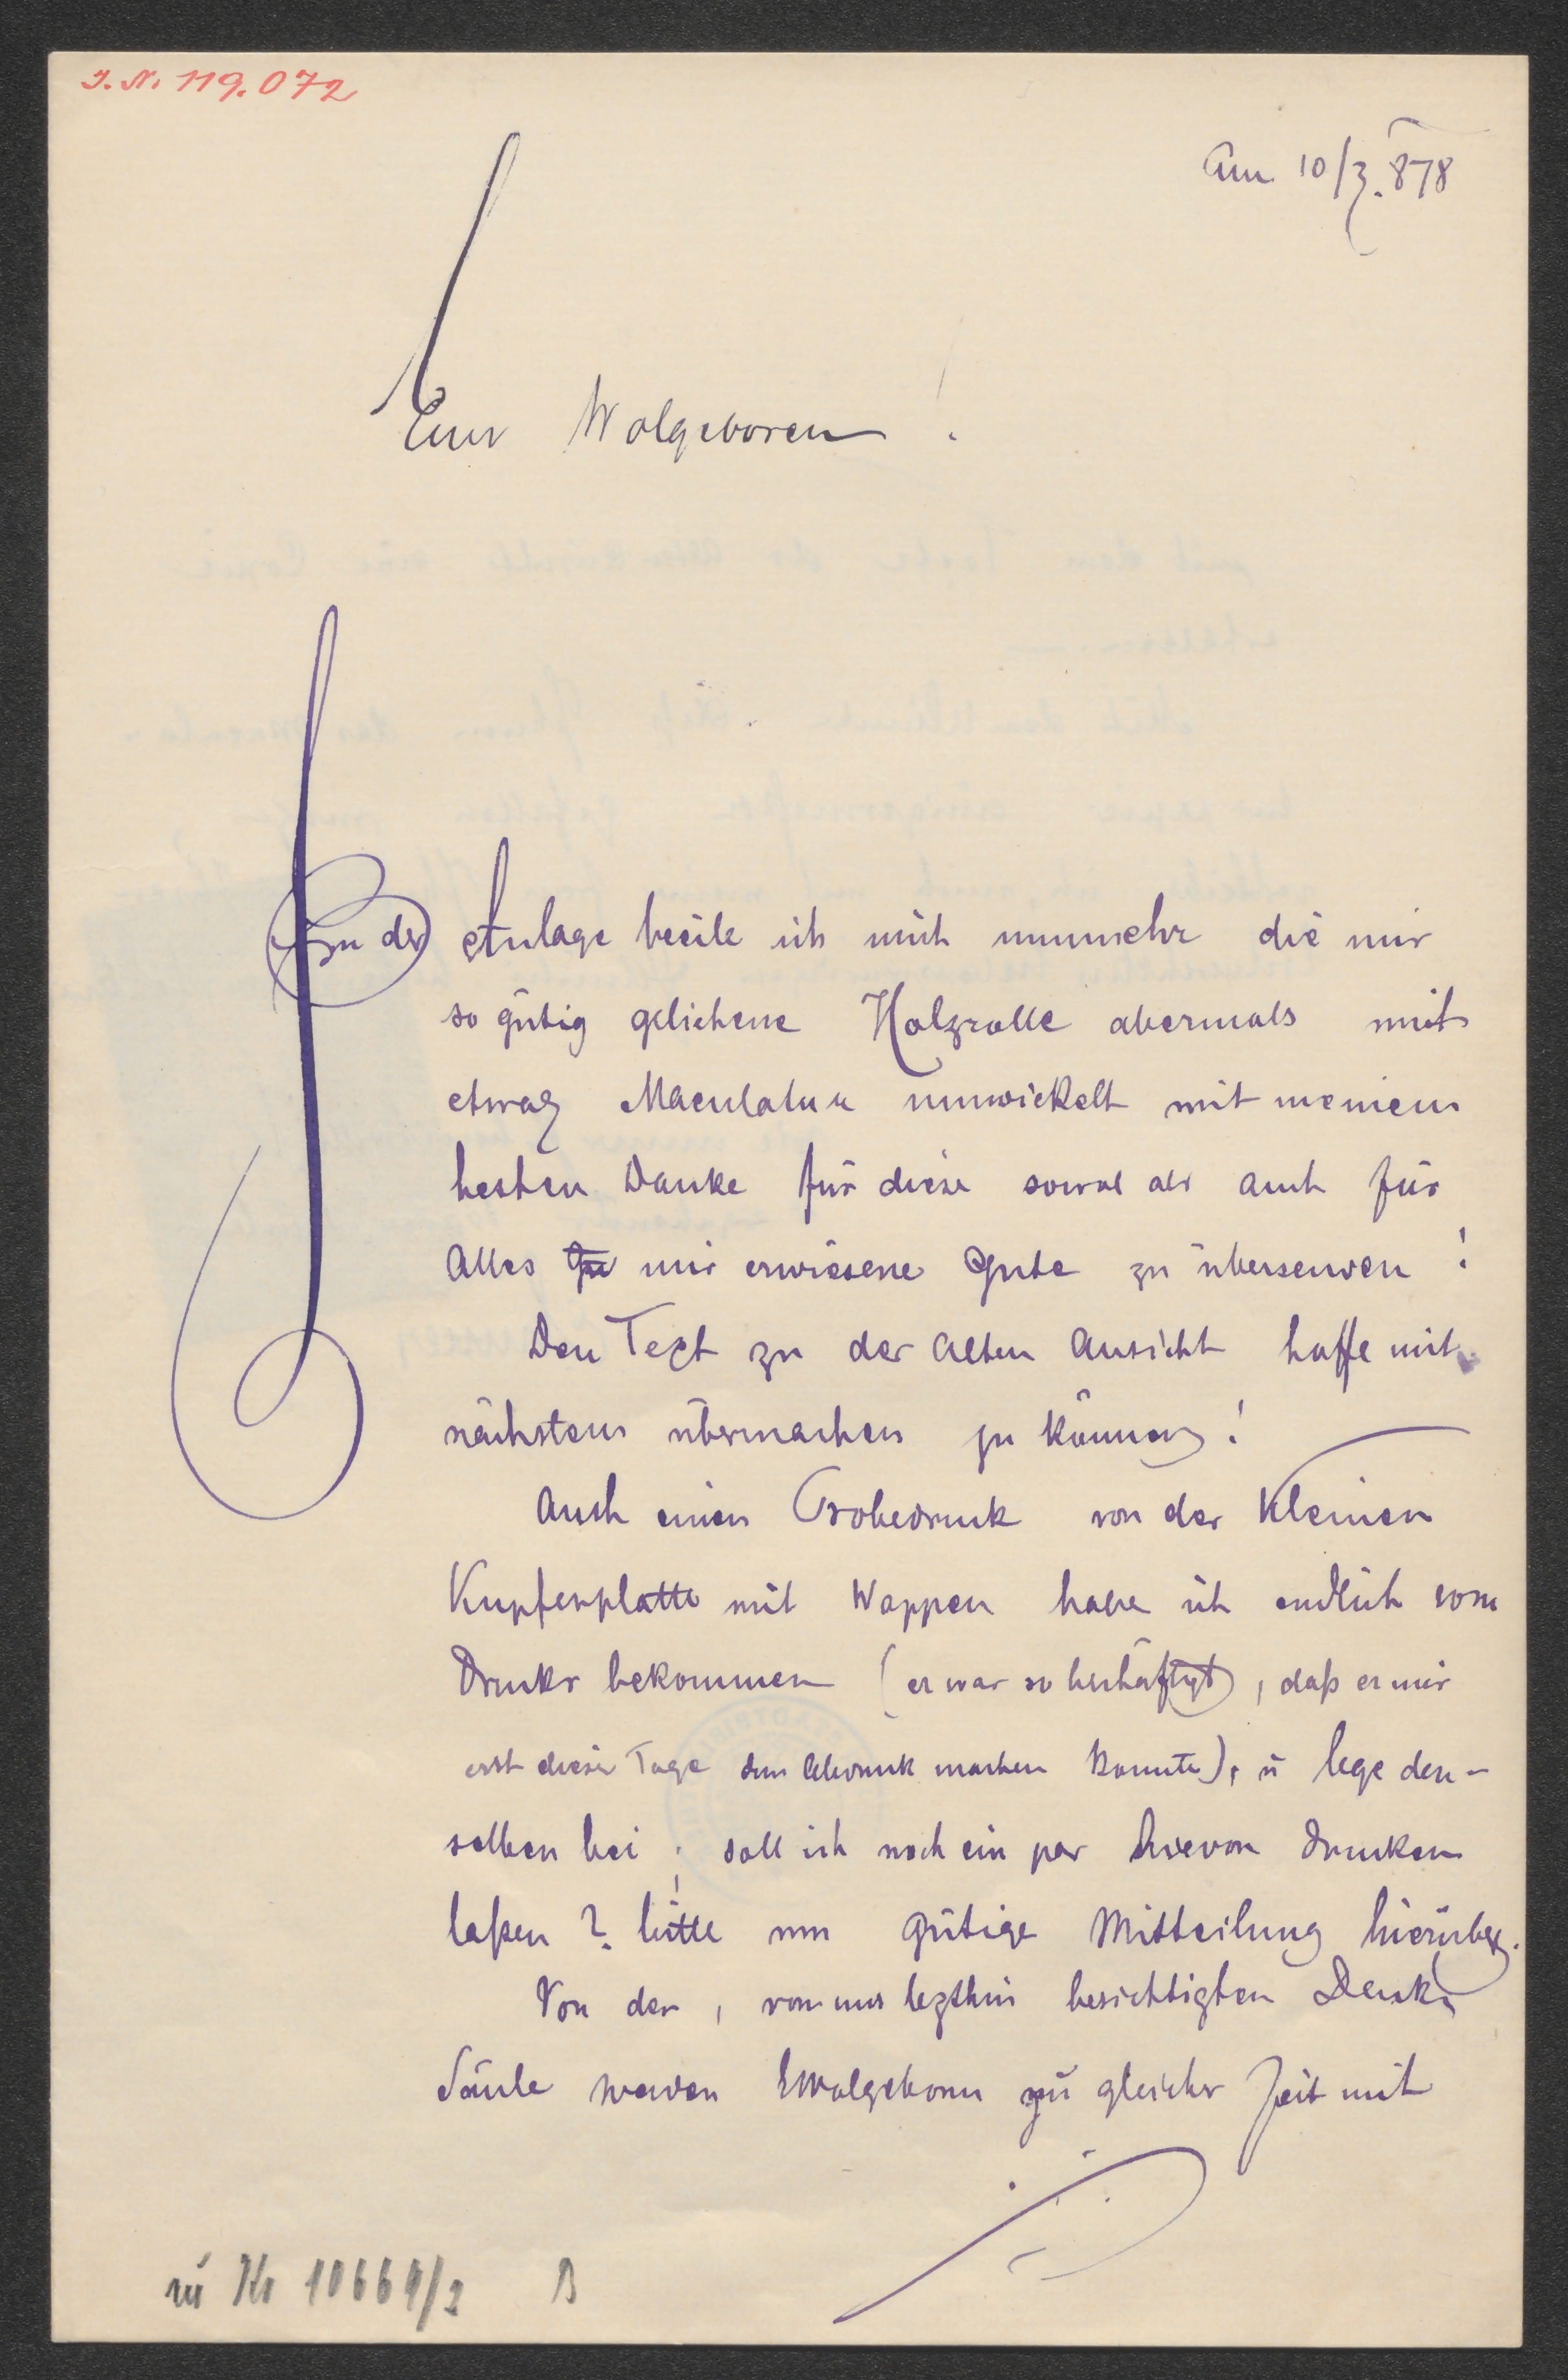 I. N. 119.072
Am 10/3. 878
Euer Wolgeboren !
In der Anlage beeile ich mich nunmehr die mir
so gütig geliehene Holzrolle abermals mit
etwas Maculatur umwickelt mit meinem
besten Danke für diese sowol als auch für
Alles mir erwiesene Gute zu übersenden !
Den Text zu der alten Ansicht hoffe mit
nächstem übermachen zu können !
Auch einen Probedruck von der kleinen
Kupferplatte mit Wappen habe ich endlich vom
Druker bekommen (er war so beschäftigt, daß er mir
erst dieser Tage den Abdruck machen konnte), u lege den-
selben bei ; soll ich noch ein par hievon druken
laßen ? bitte um gütige Mitteilung hierüber.
Von der, von uns lezthin besichtigten Denk-
Säule werden Ewolgeboren zu gleicher Zeit mit
zu Nr 10669/2 B